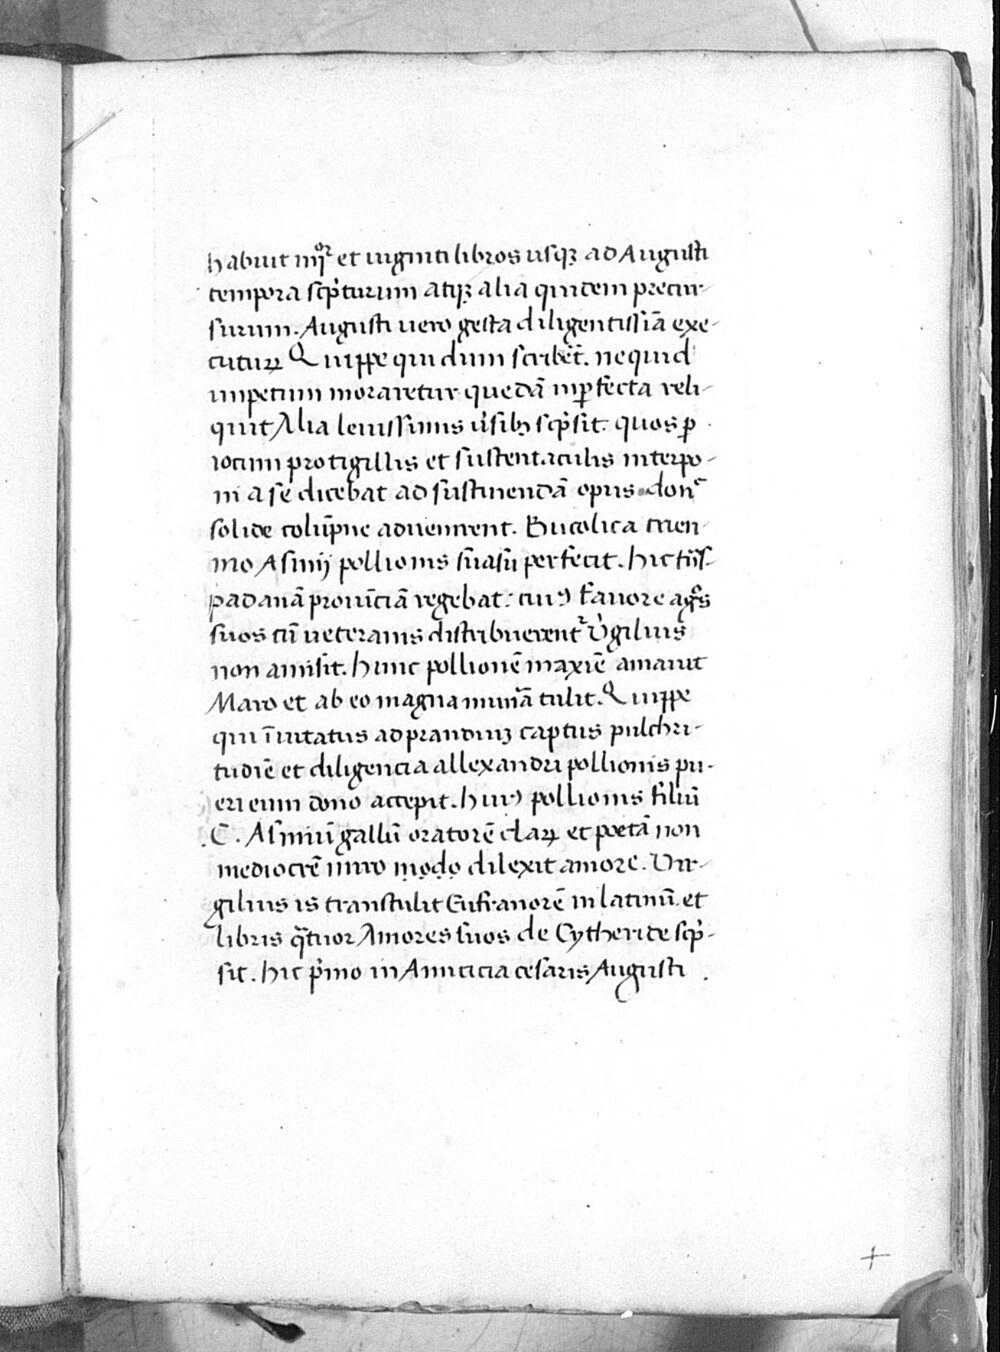 habuit iiijᵒʳ et uiginti libros usqꝫ ad Augusti
tempora scp̕turum atqꝫ alia quidem precur-
surum. Augusti uero gesta diligentissīa exe-
cuturꝝ Quippe qui dum scribēt. ne quid
impetum moraretur quedā inꝑfecta reli-
quit Alia leuissimis u̕sibꝫ scp̕sit. quos ꝑ
iocum pro tigillis et sustentaculis interpo-
ni a se dicebat ad sustinendā opus donᶜ
solide colūpne aduenirent. Bucolica trien-
nio Asinij pollionis suasū perfecit. hic trās-
padanā prouīciā regebat: cuiꝰ fauore agᵒs
suos cū ueteranis distribuerentᷣ U̕gilius
non amisit. hunc pollionē maxīe amauit
Maro et ab eo magna munā tulit. Quippe
qui īuitatus ad prandiuꝫ captus pulchri-
tudīe et diligencia allexandri pollionis pu-
eri eum dono accepit. huiꝰ pollionis filiū
.C. Asiniū gallū oratorē clarꝝ et poetā non
mediocrē miro ṃọḍọ dilexit amore. Vir-
gilius is transtulit Eufranorē in latinū. et
libris q̄tuor Amores suos de Cytheride scp̕-
sit. hic p̕mo in Amicicia cesaris Augusti .
+